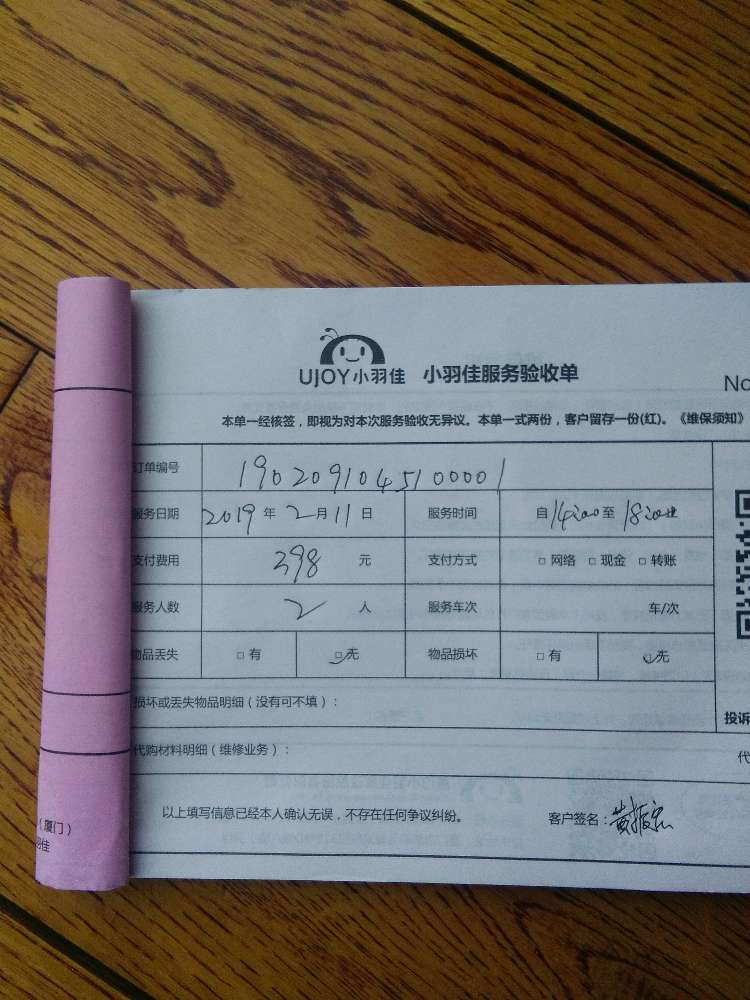 UJOY小羽佳 小羽佳服务验收单
No
本单一经核签，即视为对本次服务验收无异议。本单一式两份，客户留存一份(红)。《维保须知》
订单编号 1902091045100001
服务日期 2019 年 2 月 11 日 服务时间 自14:00至18:00止
支付费用 398 元 支付方式 □ 网络 □ 现金 □ 转账
服务人数 2 人 服务车次 车/次
物品丢失 □ 有 □ 无 物品损坏 □ 有 □ 无
损坏或丢失物品明细（没有可不填）：
投诉
代购材料明细（维修业务）：
代
以上填写信息已经本人确认无误，不存在任何争议纠纷。 客户签名：黄振宏
（厦门）
羽佳